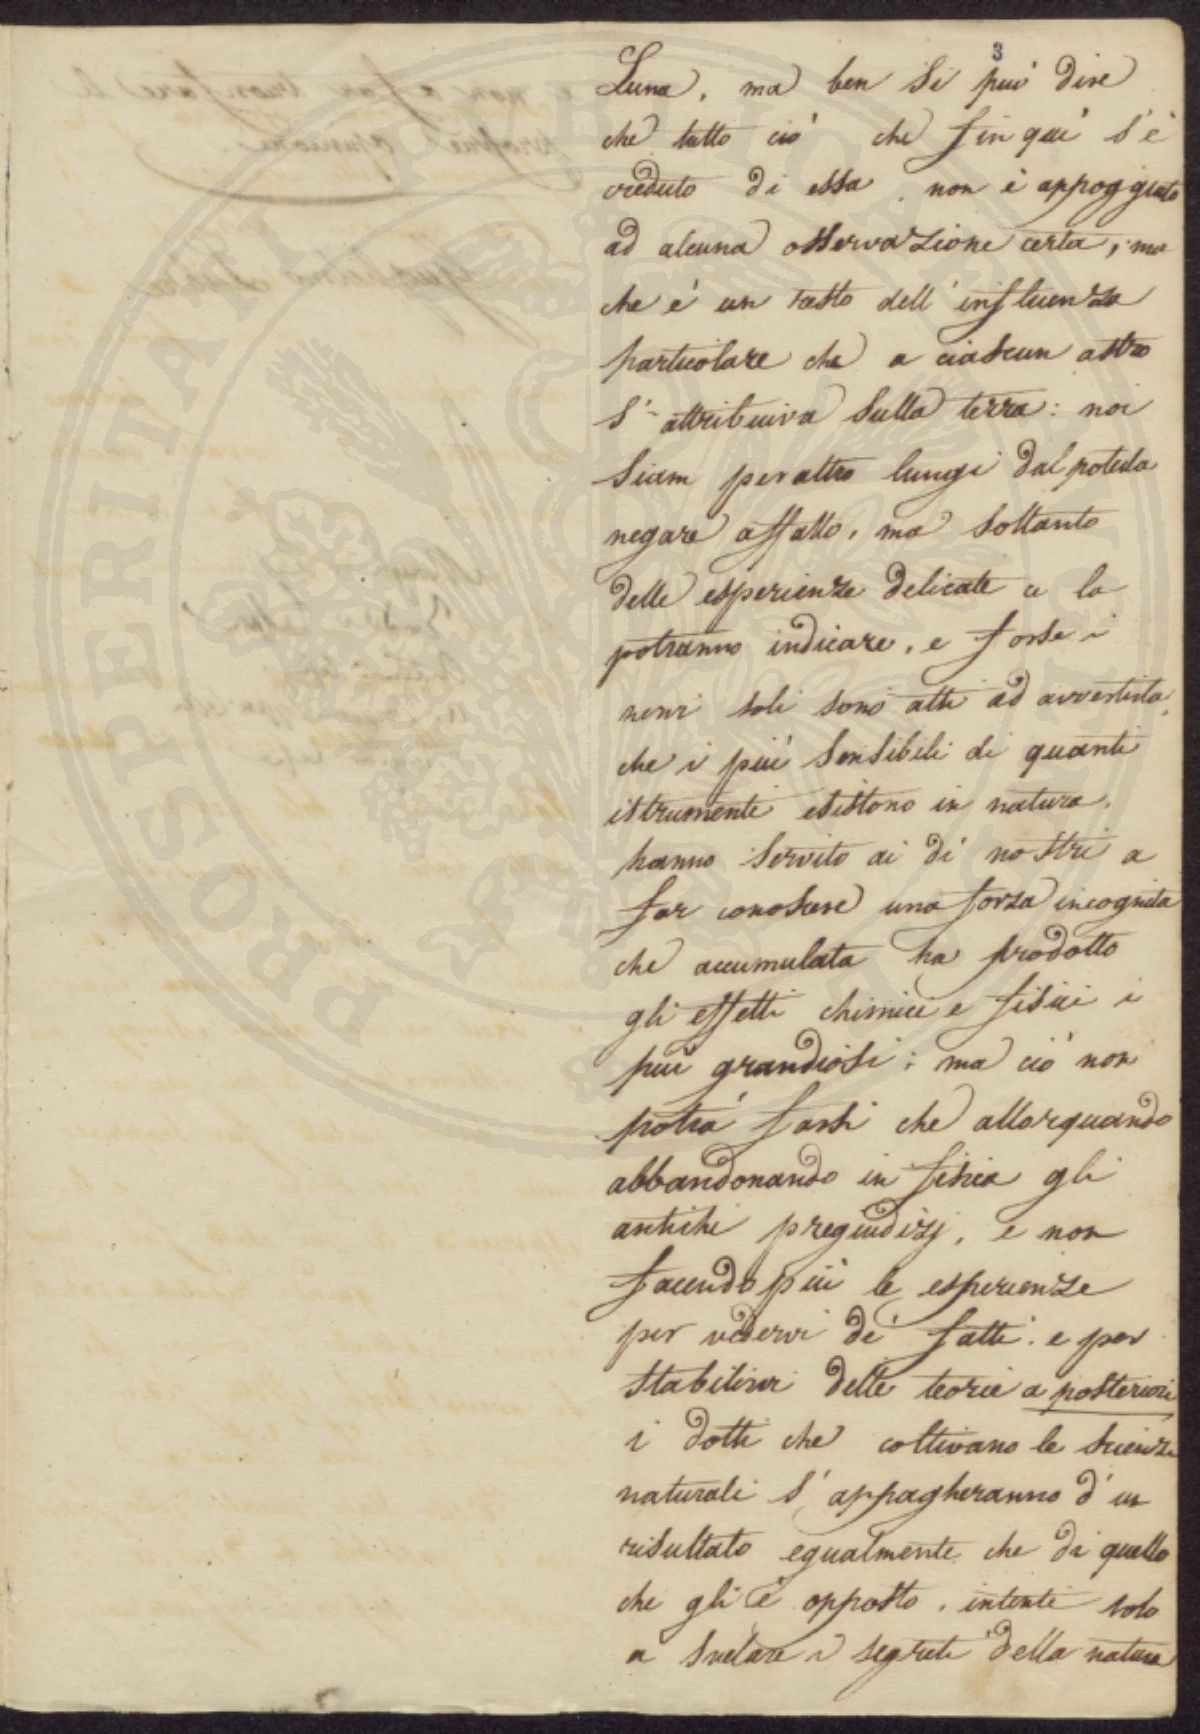 3
Luna, ma ben si può dire
che tutto ciò che fin qui s'è
creduto di essa, non è appoggiato
ad alcuna osservazione certa, ma
che è un resto dell'influenza
particolare che a ciascun astro
s'attribuiva sulla terra: noi
siam peraltro lungi dal poterla
negare affatto, ma soltanto
delle esperienze delicate ce la
potranno indicare, e forse i
nervi soli sono atti ad avvertirla,
che i più sensibili di quanti
istrumenti esistono in natura,
hanno servito ai dì nostri a
far conoscere una forza incognita
che accumulata ha prodotto
gli effetti chimici e fisici i
più grandiosi; ma ciò non
potrà farsi che allorquando
abbandonando in fisica gli
antichi pregiudizj, e non
facendo più le esperienze
per vedervi de' fatti e per
stabilirvi delle teorie a posteriori
i dotti che coltivano le scienze
naturali s'appagheranno d'un
risultato egualmente che di quello
che gli è opposto, intenti solo
a svelare i segreti della natura
PROSPERITATI PUBLICAE